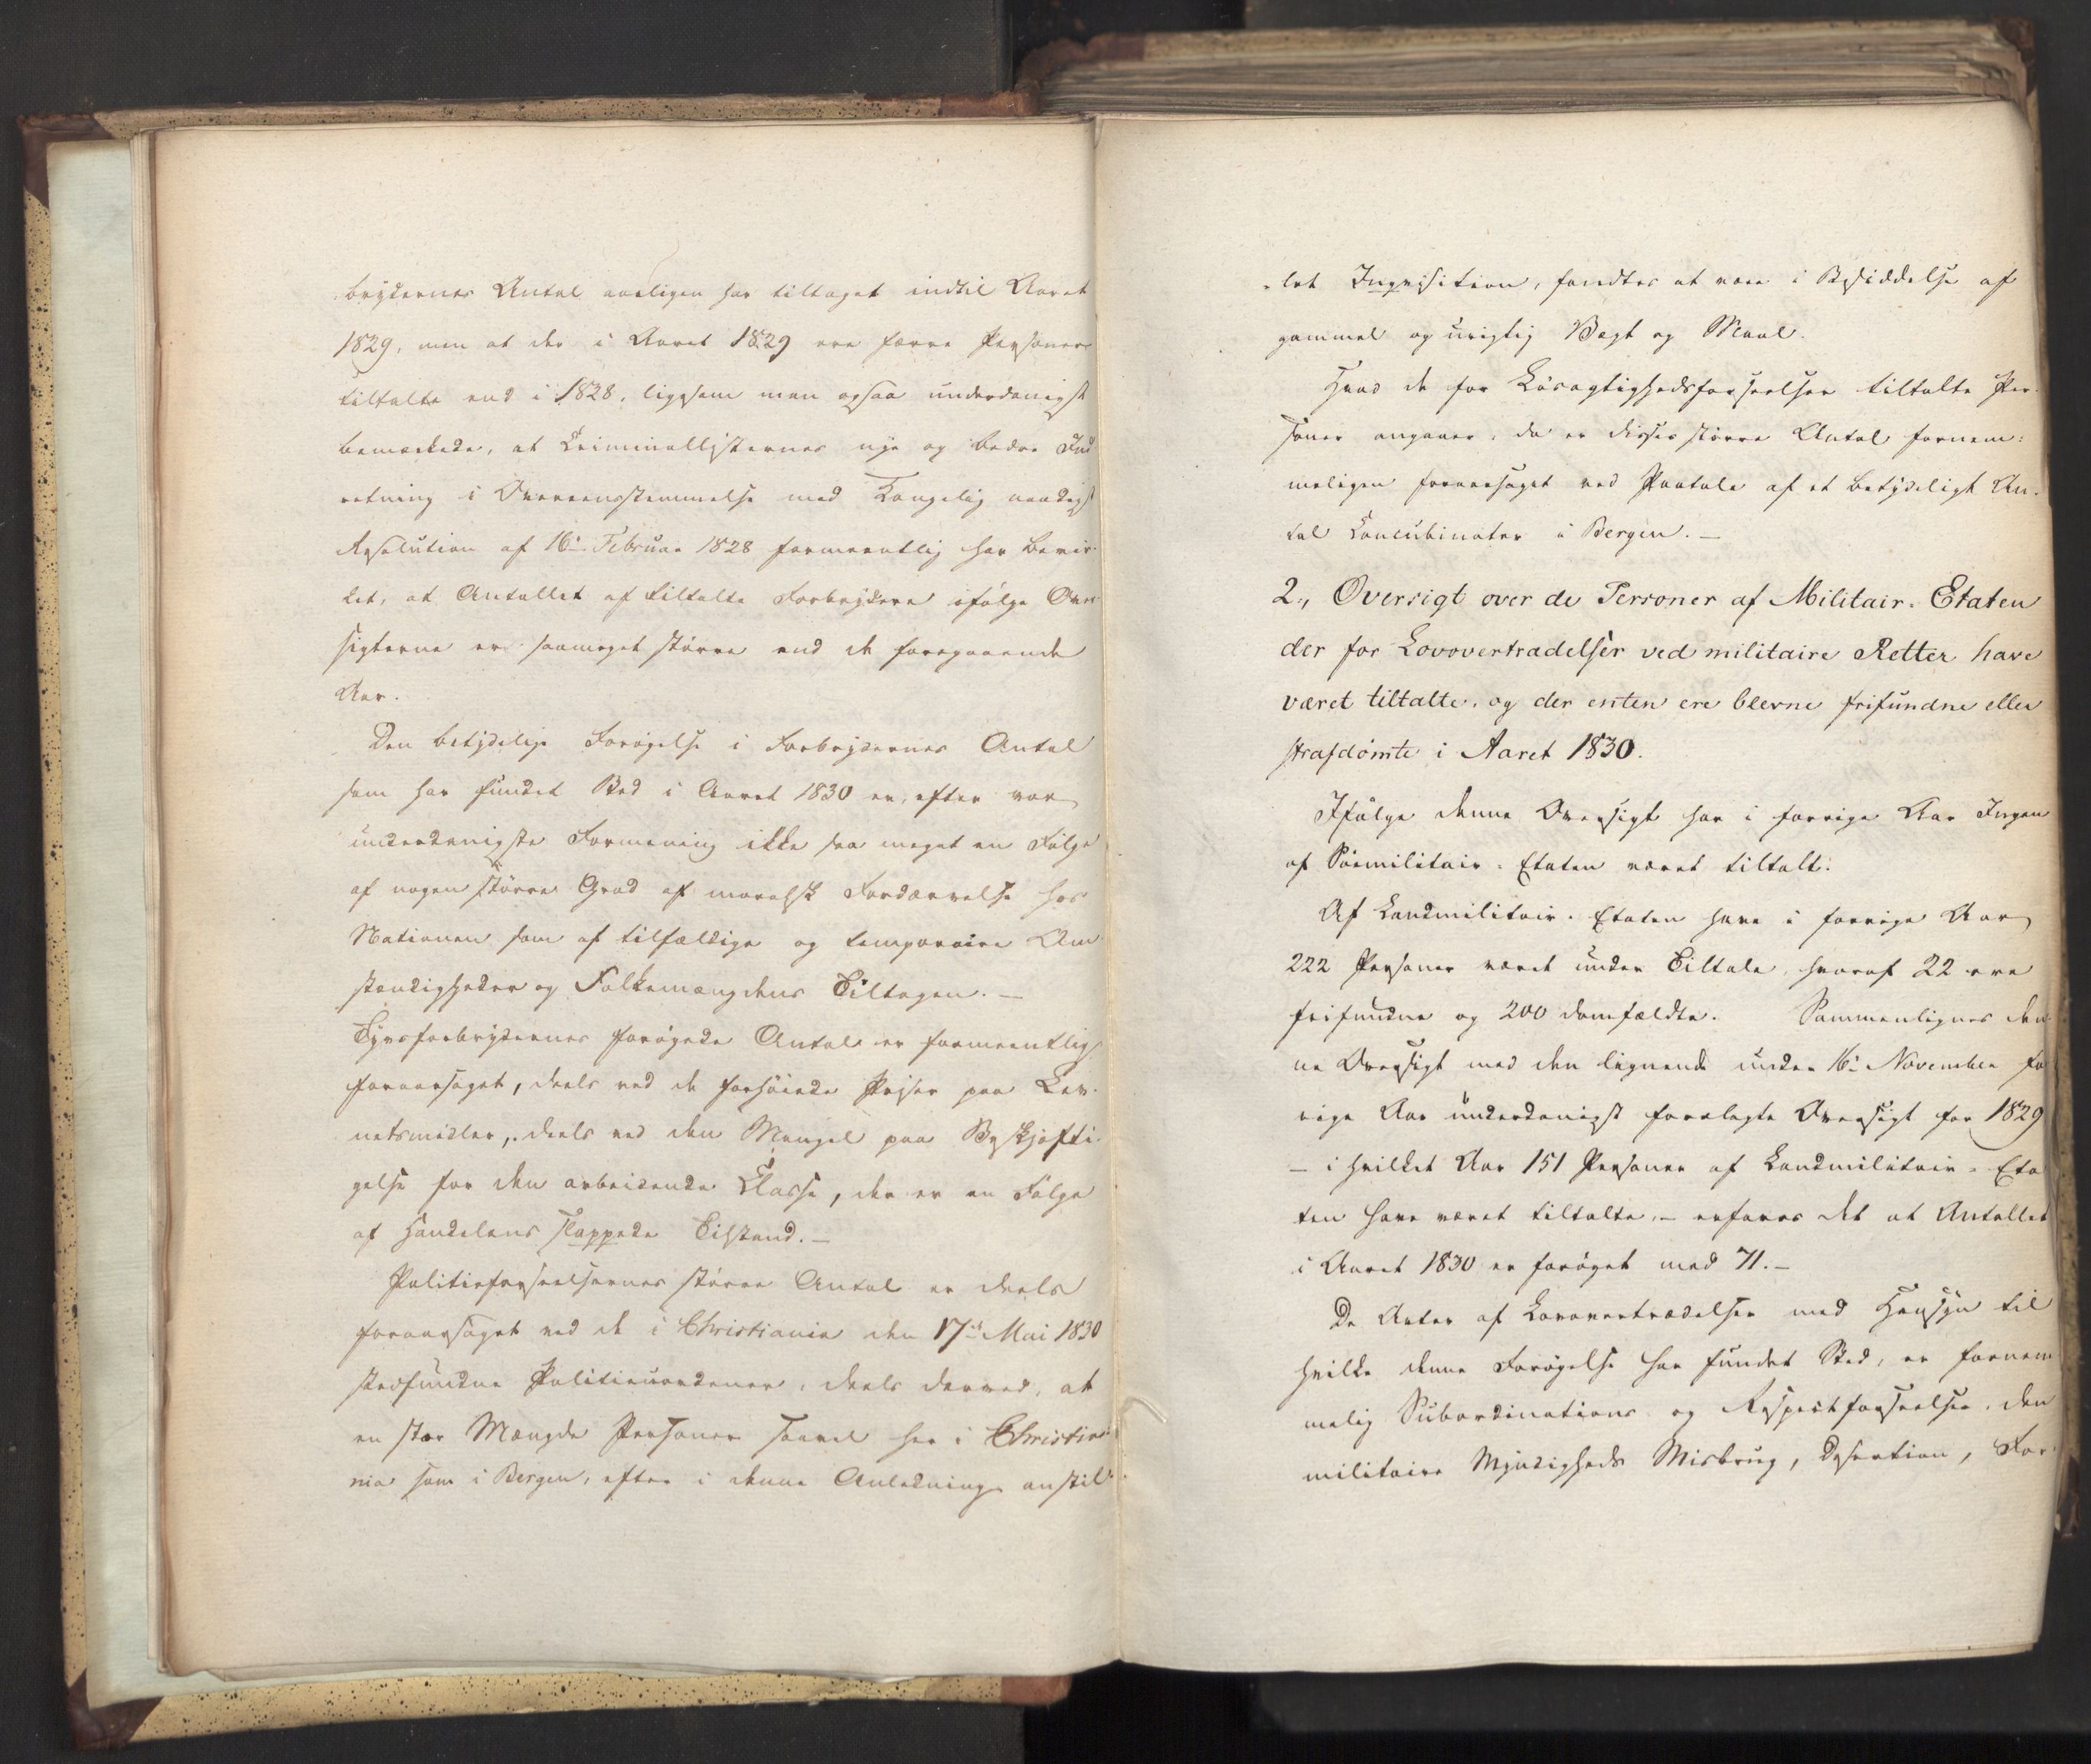 brydernes Antal aarligen har tiltaget indtil Aaret
1829, men at der i Aaret 1829 ere færre Personer
tiltalte end i 1828, ligesom man ogsaa underdanigst
bemærkede, at Criminallisternes nye og bedre Ind
retning i Overeensstemmelse med Kongelig naadigst
Resolution af 16de Februar 1828 formeentlig har bevir-
ket, at Antallet af tiltalte Forbrydere ifølge Over
sigterne er saameget større end de foregaaende
Aar.
Den betydelige Forøgelse i Forbrydernes Antal
som har fundet Sted i Aaret 1830 er, efter vor
underdanigste Formening ikke saa meget en Følge
af nogen større Grad af moralsk Fordærvelse hos
Nationen som af tilfældige og temporaire Om
stændigheder og Folkemængdens Tiltagen. —
Tyvsforbrydernes forøgede Antal er formeentlig
foraarsaget, deels ved de forhøiede Priser paa Lev-
netsmidler, deels ved den Mangel paa Beskjæfti-
gelse for den arbeidende Classe, der er en Følge
af Handelens slappede Tilstand. —
Politieforseelsernes større Antal er deels
foraarsaget ved de i Christiania den 17de Mai 1830
stedfundne Politieuordener, deels derved, at
en stor Mængde Personer saavel her i Christia-
nia som i Bergen, efter i denne Anledning anstil-
-let Inqvisition, fandtes at være i Besiddelse af
gammel og urigtig Vægt og Maal.
Hvad de for Løsagtighedsforseelser tiltalte Per-
soner angaaer, da er disses større Antal fornem-
meligen foraarsaget ved Paatale af et betydeligt An-
tal Concubinater i Bergen. —
2., Oversigt over de Personer af Militair-Etaten
der for Lovovertradelser ved militaire Retter have
været tiltalte, og der enten ere blevne frifundne eller
strafdømte i Aaret 1830.
Ifølge denne Oversigt har i forrige Aar Ingen
af Søemilitair-Etaten været tiltalt.
Af Landmilitair-Etaten have i forrige Aar
222 Personer været under Tiltale, hvoraf 22 ere
frifundne og 200 domfældte. Sammenlignes den
ne Oversigt med den lignende under 16de November for
rige Aar underdanigst forelagte Oversigt for 1829
— i hvilket Aar 151 Personer af Landmilitair-Eta
ten have været tiltalte, — erfares det at Antallet
i Aaret 1830 er forøget med 71. —
De Arter af Lovovertrædelser med Hensyn til
hvilke denne Forøgelse har fundet Sted, er fornem
melig Subordinations og Respectforseelser, den
militaire Myndigheds Misbrug, Desertion, For-